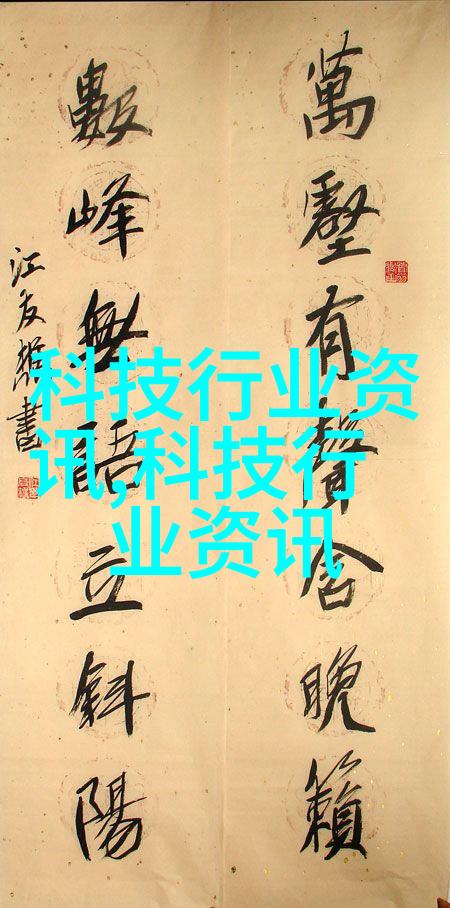 萬壑有聲含晚籟
數峰無語立斜陽
江友樵書
科技行业资
讯,科技行
业资讯